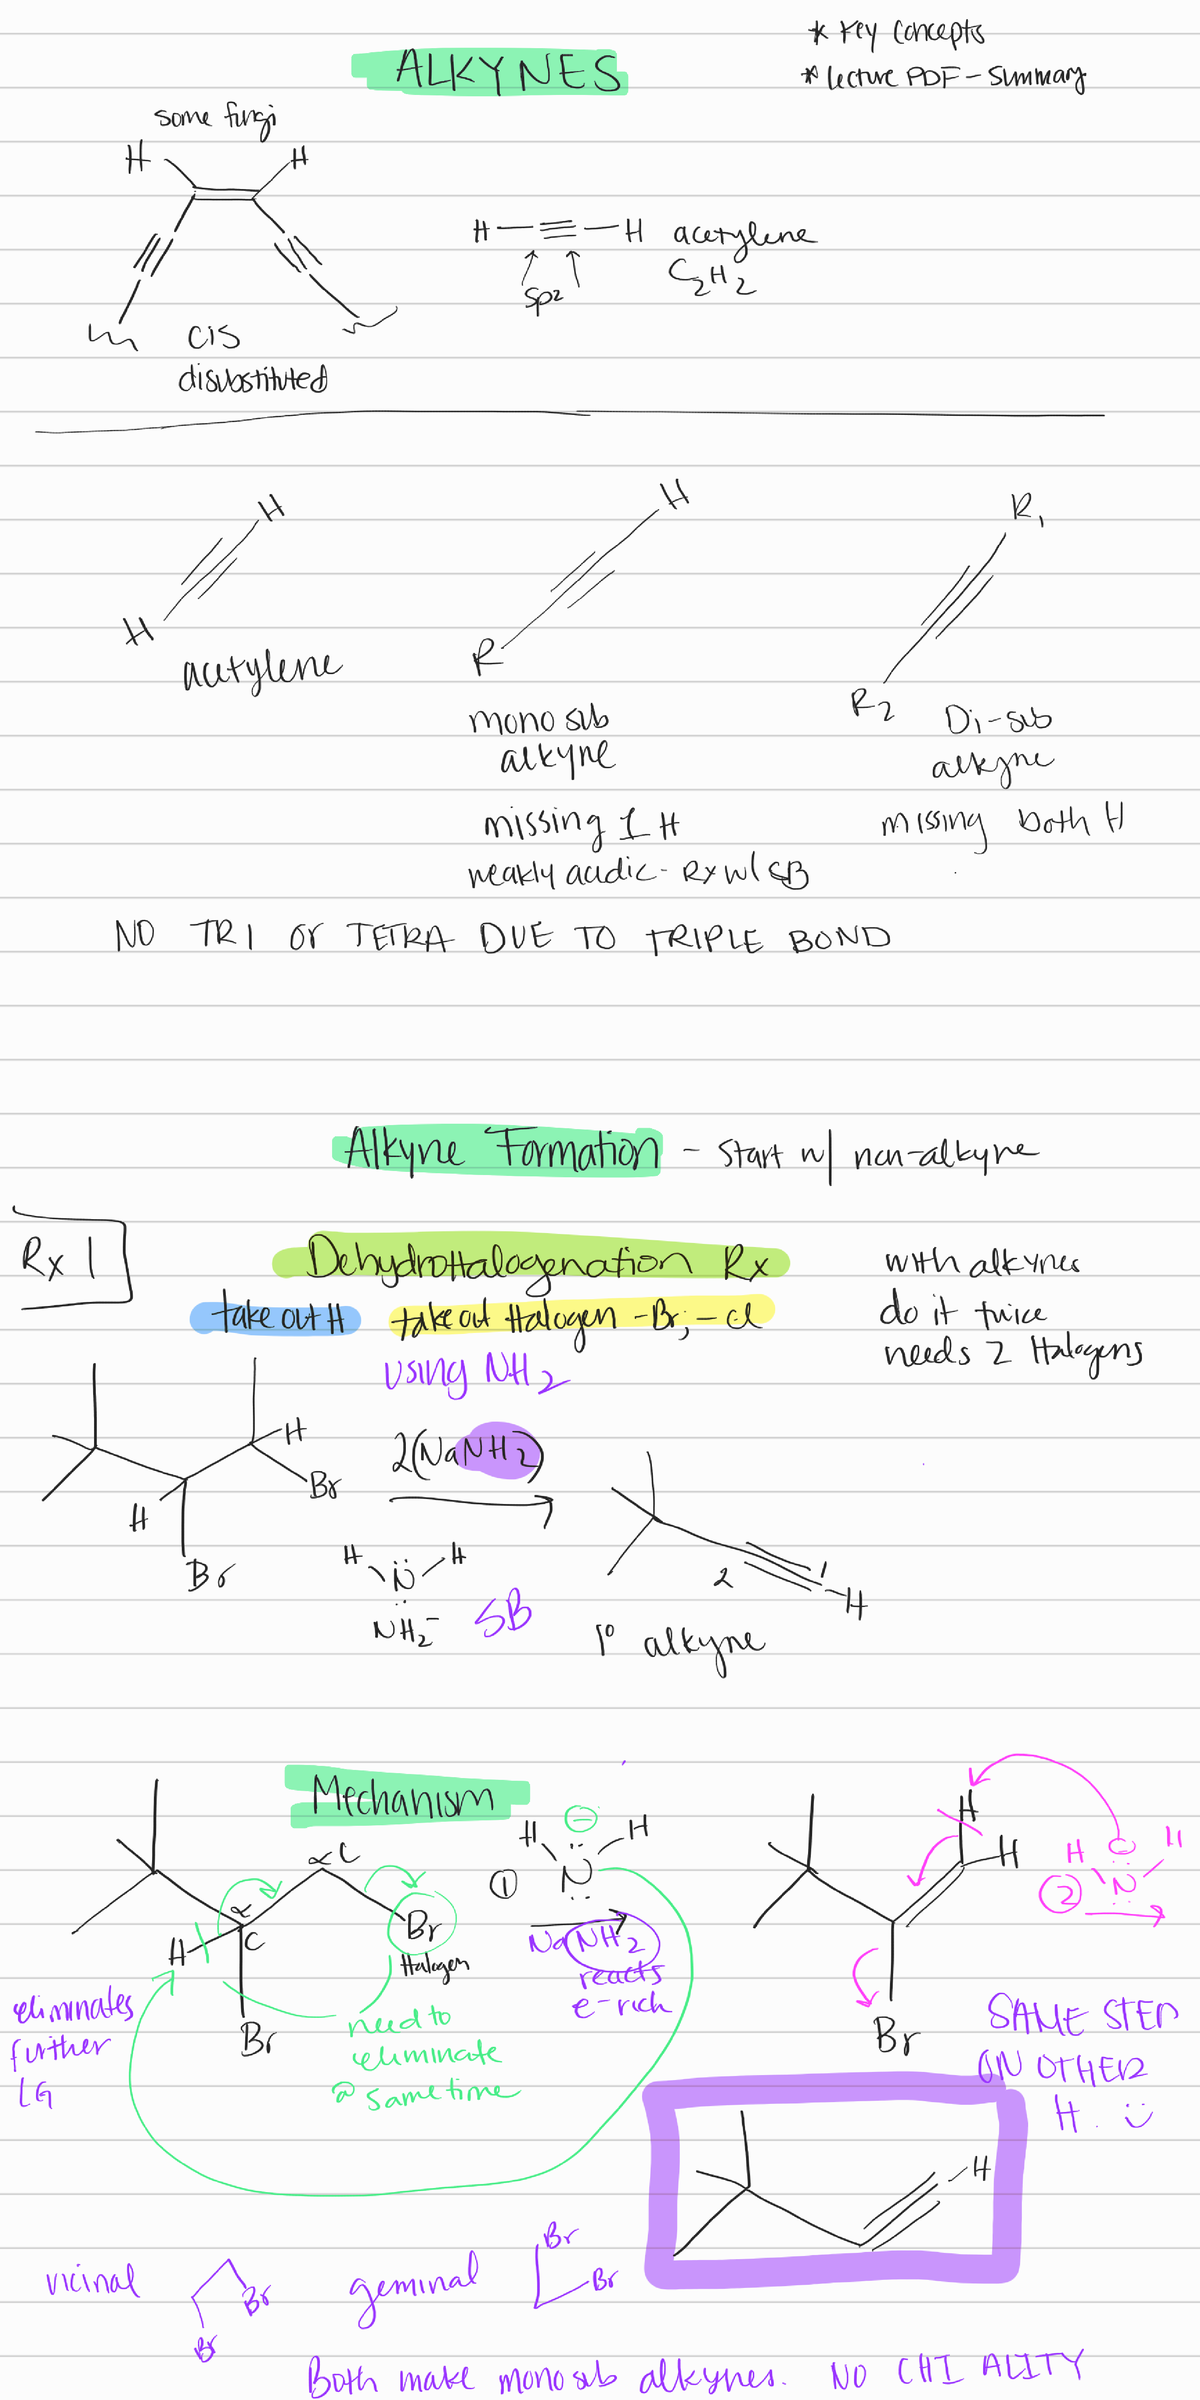 * Key Concepts
ALKYNES
* lecture PDF - Summary
some fungi
H H
H H acetylene
C2H2
Sp2
cis
disubstituted
H H R1
H
acetylene R R2
mono sub Di-sub
alkyne alkyne
missing 1 H missing both H
weakly acidic - Rx w/ SB
NO TRI or TETRA DUE TO TRIPLE BOND
Alkyne Formation - start w/ non-alkyne
Rx 1 DehydroHalogenation Rx with alkynes
take out H take out Halogen -Br, -Cl do it twice
using NH2 needs 2 Halogens
H
2(NaNH2)
Br
H
Br H N H 2 1 H
NH2- SB
1° alkyne
Mechanism
αC H N H - H
① H H N H
α C Br ②
H Halogen NaNH2
reacts
e- rich
eliminates
further
LG
Br need to
eliminate
@ same time
Br SAME STEP
ON OTHER
H. :)
H
vicinal Br Br geminal Br Br
Both make mono sub alkynes. NO CHI ALITY